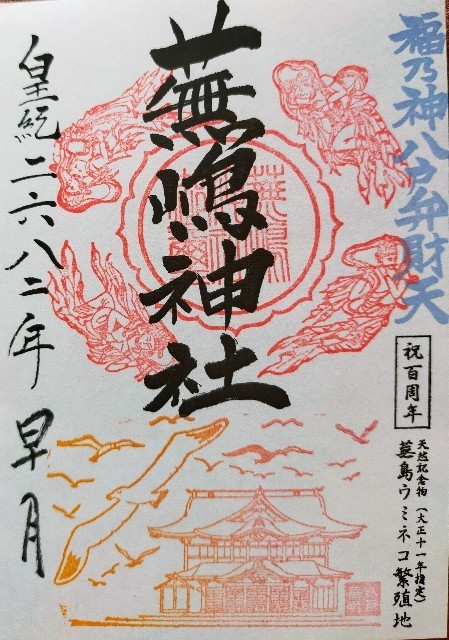 福乃神八戸弁財天
祝百周年
天然記念物(大正十一年指定)
蕪島ウミネコ繁殖地
蕪嶋神社
皇紀二六八二年 早月